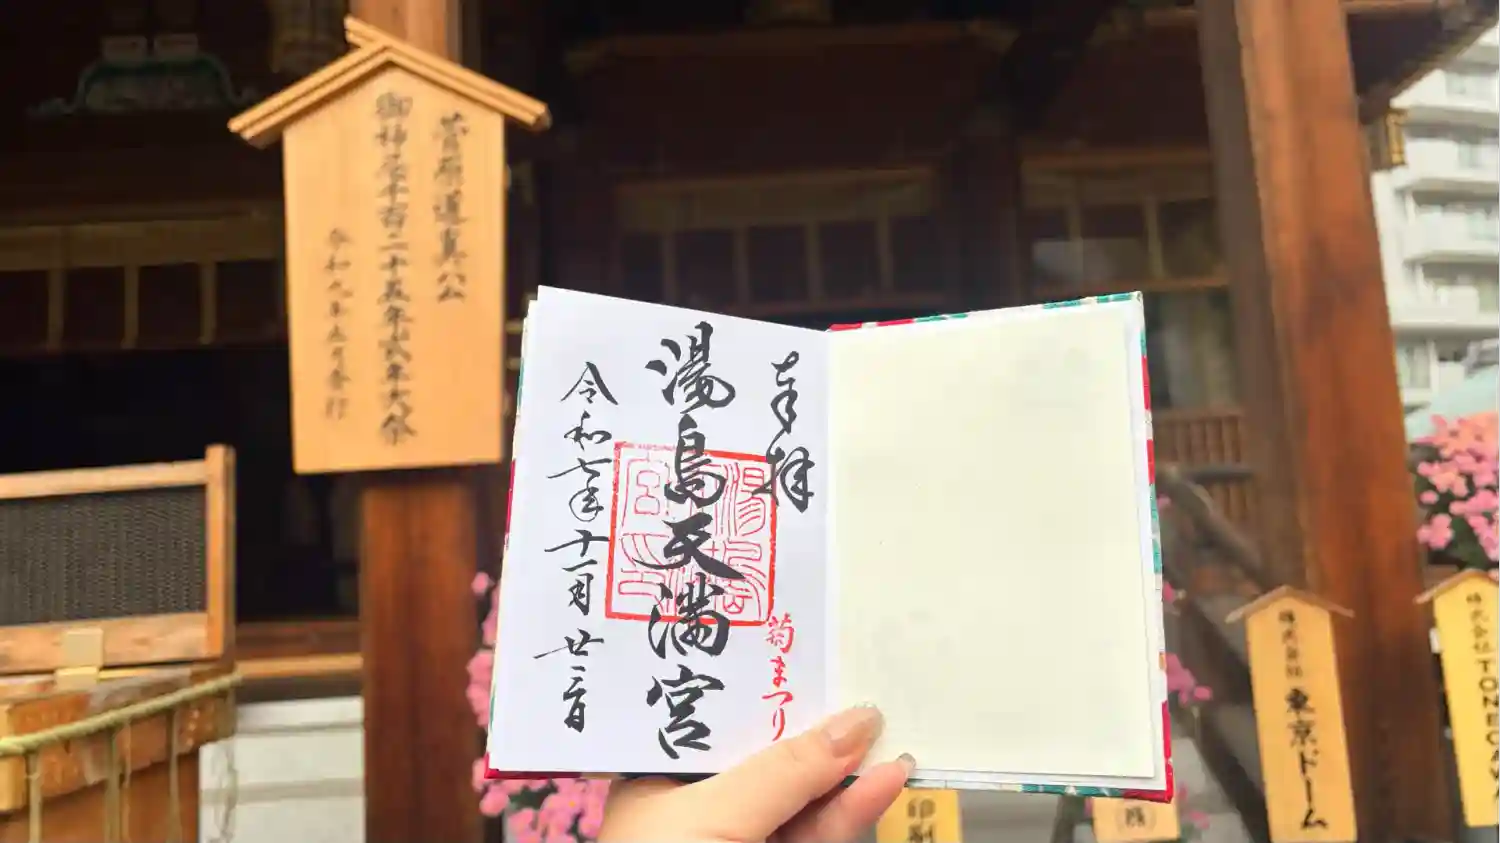 菅原道真公
御神忌千百二十五年式年大祭
令和九年五月斎行
奉拝
湯島天満宮
菊まつり
令和七年十一月廿二日
株式会社 東京ドーム
株式会社 TONEGAWA
印刷